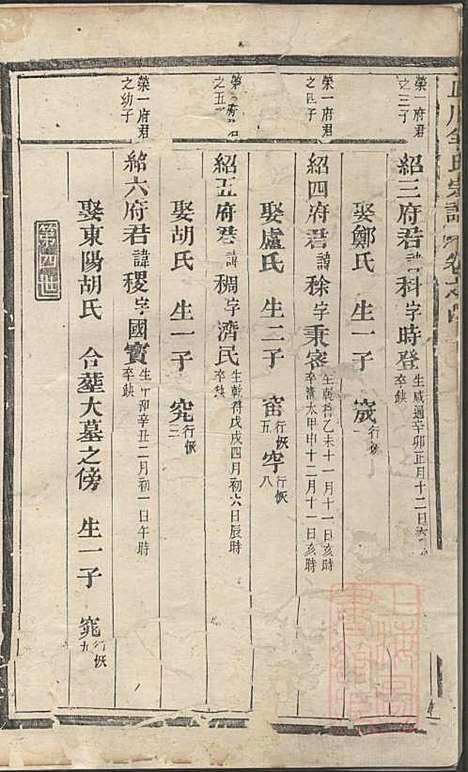 榮一府君之三子
紹三府君諱科字時登生咸通辛卯正月十二日
娶鄭氏 生一子 宬行恢一
榮一府君之四子
紹四府君諱稌字秉密生乾符乙未十一月十一日亥時卒清太甲申十二月十一亥時
娶盧氏 生二子 甯行恢五 宇行恢八
榮一府君之五子
紹五府君諱稠字濟民生乾符戊戌四月初六日辰時卒缺
娶胡氏 生一子 究行恢三
榮一府君之幼子
紹六府君諱稷字國賓生中和辛丑二月初一日午時卒缺
娶東陽胡氏 合塟大墓之傍 生一子 窕行恢九
第四世